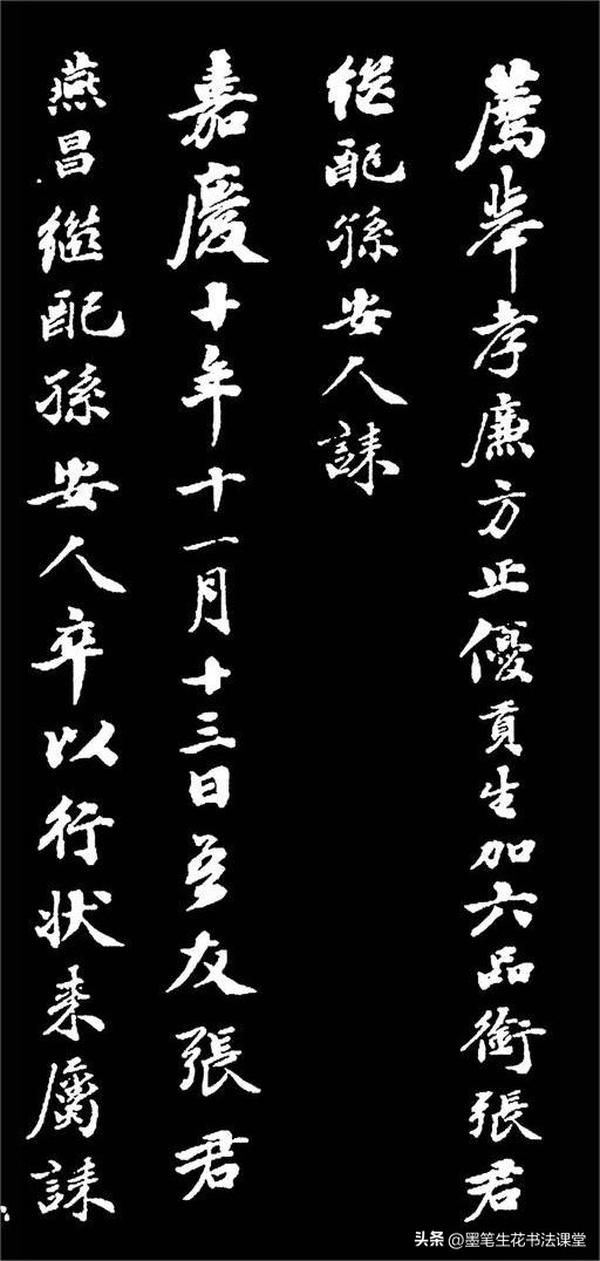 薦舉孝廉方正優貢生加六品銜張君
继配孫安人誄
嘉慶十年十一月十三日吾友張君
燕昌繼配孫安人卒以行状来属誄
头条 @墨笔生花书法课堂